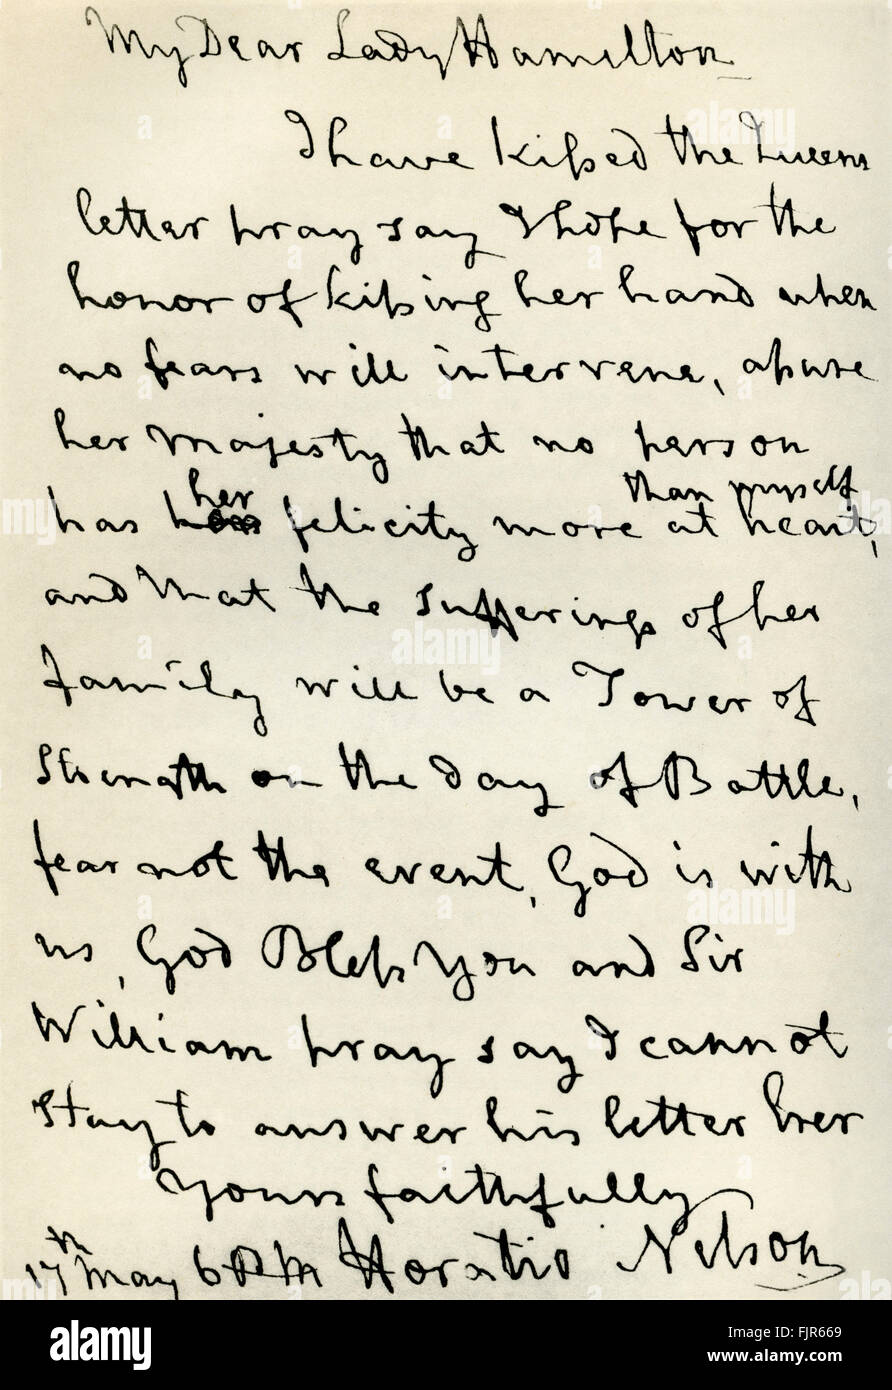 My Dear Lady Hamilton
I have kißed the Queens
letter pray say I hope for the
honor of kißing her hand when
no fears will intervene, aßure
her Majesty that no person
has her felicity more than myself at heart,
and that the sufferings of her
family will be a Tower of
Strength on the day of Battle,
fear not the event, God is with
us, God Bleß You and Sir
William pray say I cannot
stay to answer his letter Ever
Yours faithfully
17th May 6 PM Horatio Nelson
alamy
Image ID: FJR669
www.alamy.com